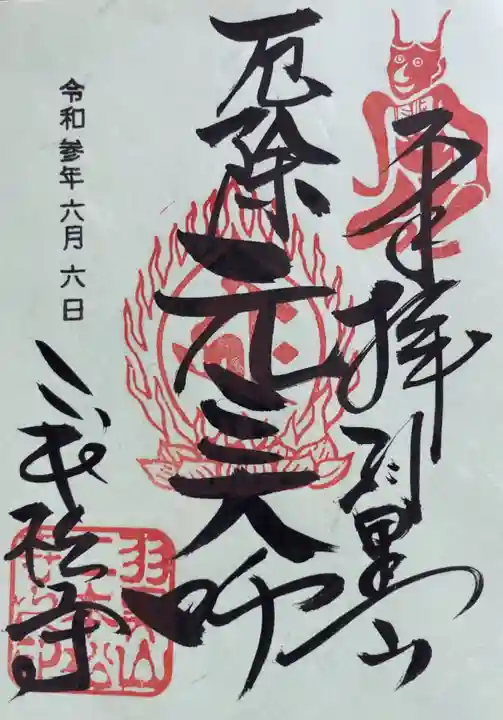 奉拝 羽黒山
厄除 元三大師
令和参年六月六日
二本松寺